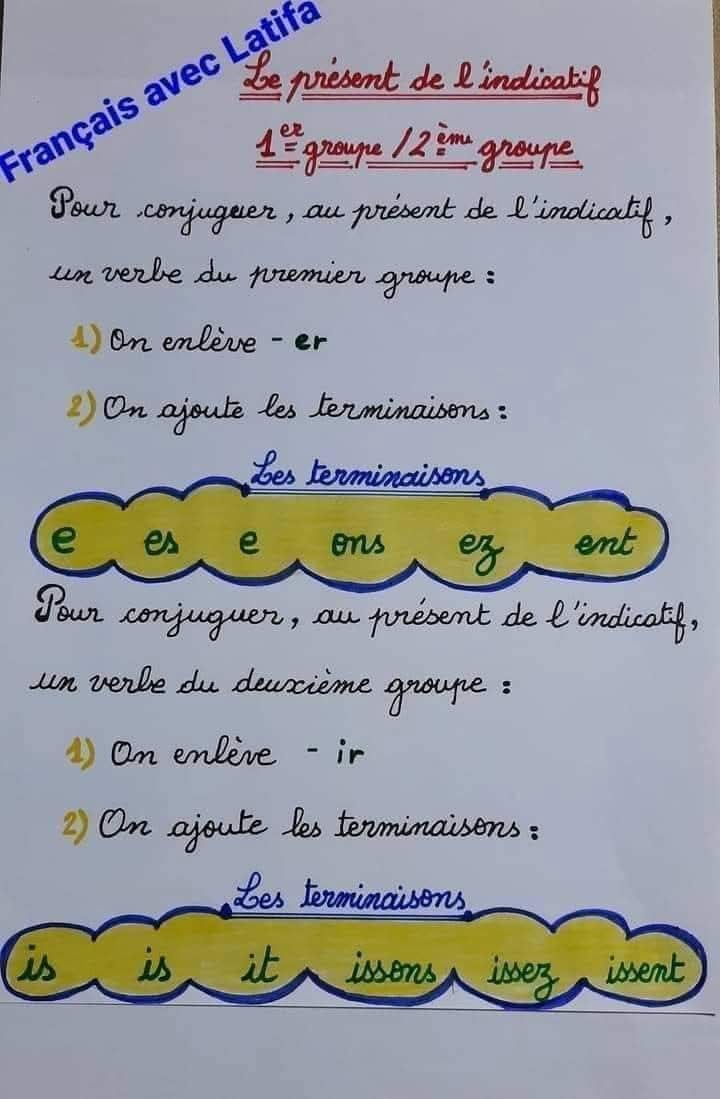 Français avec Latifa
Le présent de l'indicatif
1er groupe / 2ème groupe
Pour conjuguer, au présent de l'indicatif,
un verbe du premier groupe :
1) On enlève - er
2) On ajoute les terminaisons :
Les terminaisons
e es e ons ez ent
Pour conjuguer, au présent de l'indicatif,
un verbe du deuxième groupe :
1) On enlève - ir
2) On ajoute les terminaisons :
Les terminaisons
is is it issons issez issent